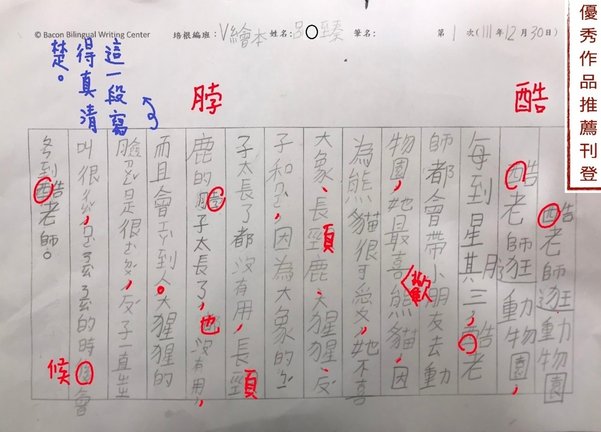 優秀作品推薦刊登
© Bacon Bilingual Writing Center 培根編班：V繪本 姓名：呂○臻 筆名： 第1次(111年12月30日)
酷
脖
這一段寫
得真清
楚。
酷老師逛動物園
酷老師逛動物園，
每到星期三，酷老
師都會帶小朋友去動
物園，她最喜歡熊貓，因
為熊貓很可愛，她不喜
大象、長頸鹿、大猩猩、
子和 因為大象的
子太長了都沒有用，長頸
鹿的脖子太長了，也沒有用，
而且會 到人。大猩猩的
臉 是很 子一直
叫很 的時候會
到酷老師。
候